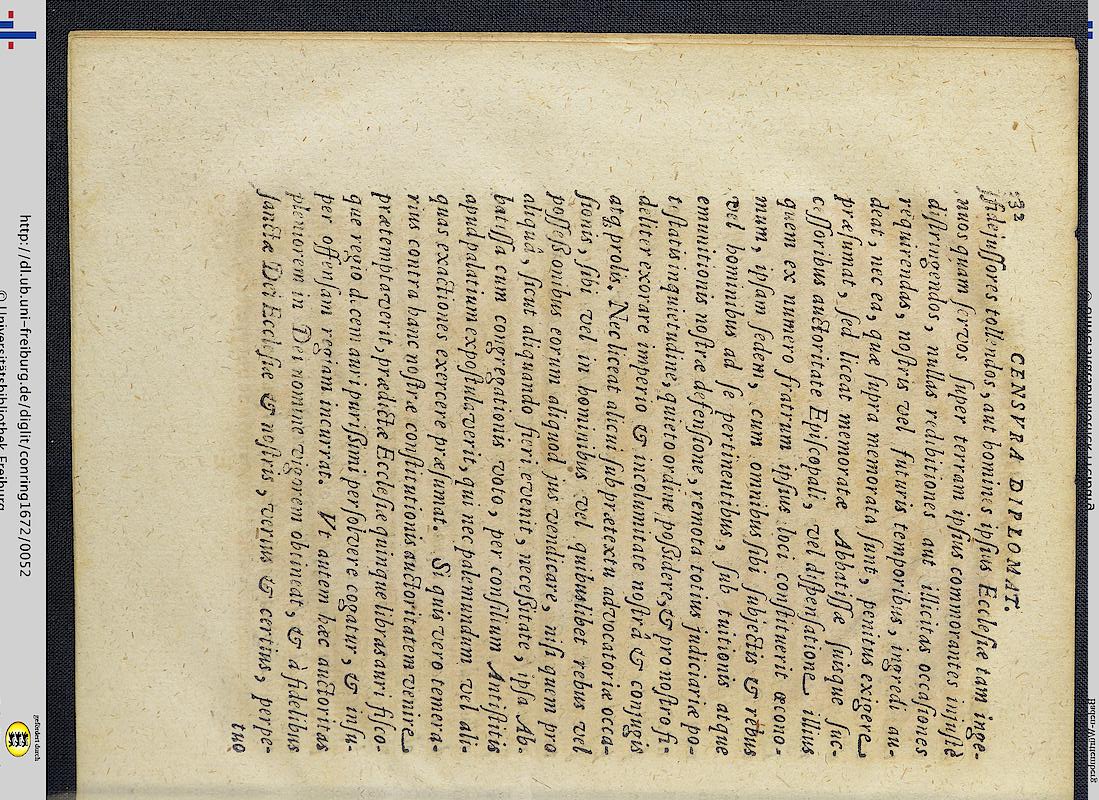 232
CENSVRA DIPLOMAT.
fidejussores tollendos, aut homines ipsius Ecclesiæ tam inge-
nuos quam servos super terram ipsius commorantes injustè
distringendos, nullas redibitiones aut illicitas occasiones
requirendas, nostris vel futuris temporibus, ingredi au-
deat, nec ea, quæ supra memorata sunt, penitus exigere
præsumat, sed liceat memoratæ Abbatissæ suisque suc-
cessoribus auctoritate Episcopali, vel dispensatione illius
quem ex numero fratrum ipsius loci constituerit œcono-
mum, ipsam sedem, cum omnibus sibi subjectis & rebus
vel hominibus ad se pertinentibus, sub tuitionis atque
emunitionis nostræ defensione, remota totius judiciariæ po-
testatis inquietudine, quieto ordine possidere, & pro nostro fi-
deliter exorare imperio & incolumitate nostrâ & conjugis
atq; prolis. Nec liceat alicui sub prætextu advocatoriæ occa-
sionis, sibi vel in hominibus vel quibuslibet rebus vel
possessionibus eorum aliquod jus vendicare, nisi quem pro
aliquâ, sicut aliquando fieri evenit, necessitate, ipsa Ab-
batissa cum congregationis voto, per consilium Antistitis
apud palatium expostulaverit, qui nec palemundam vel ali-
quas exactiones exercere præsumat. Si quis vero temera-
rius contra hanc nostræ constitutionis auctoritatem venire
prætemptaverit, prædictæ Ecclesiæ quinque libras auri fisco-
que regio decem auri purissimi persolvere cogatur, & insu-
per offensam regiam incurrat. Vt autem hæc auctoritas
pleniorem in Dei nomine vigorem obtineat, & à fidelibus
sanctæ Dei Ecclesiæ & nostris, verius & certius, perpe-
tuo
http://dl.ub.uni-freiburg.de/diglit/conring1672/0052
© Universitätsbibliothek Freiburg
gefördert durch